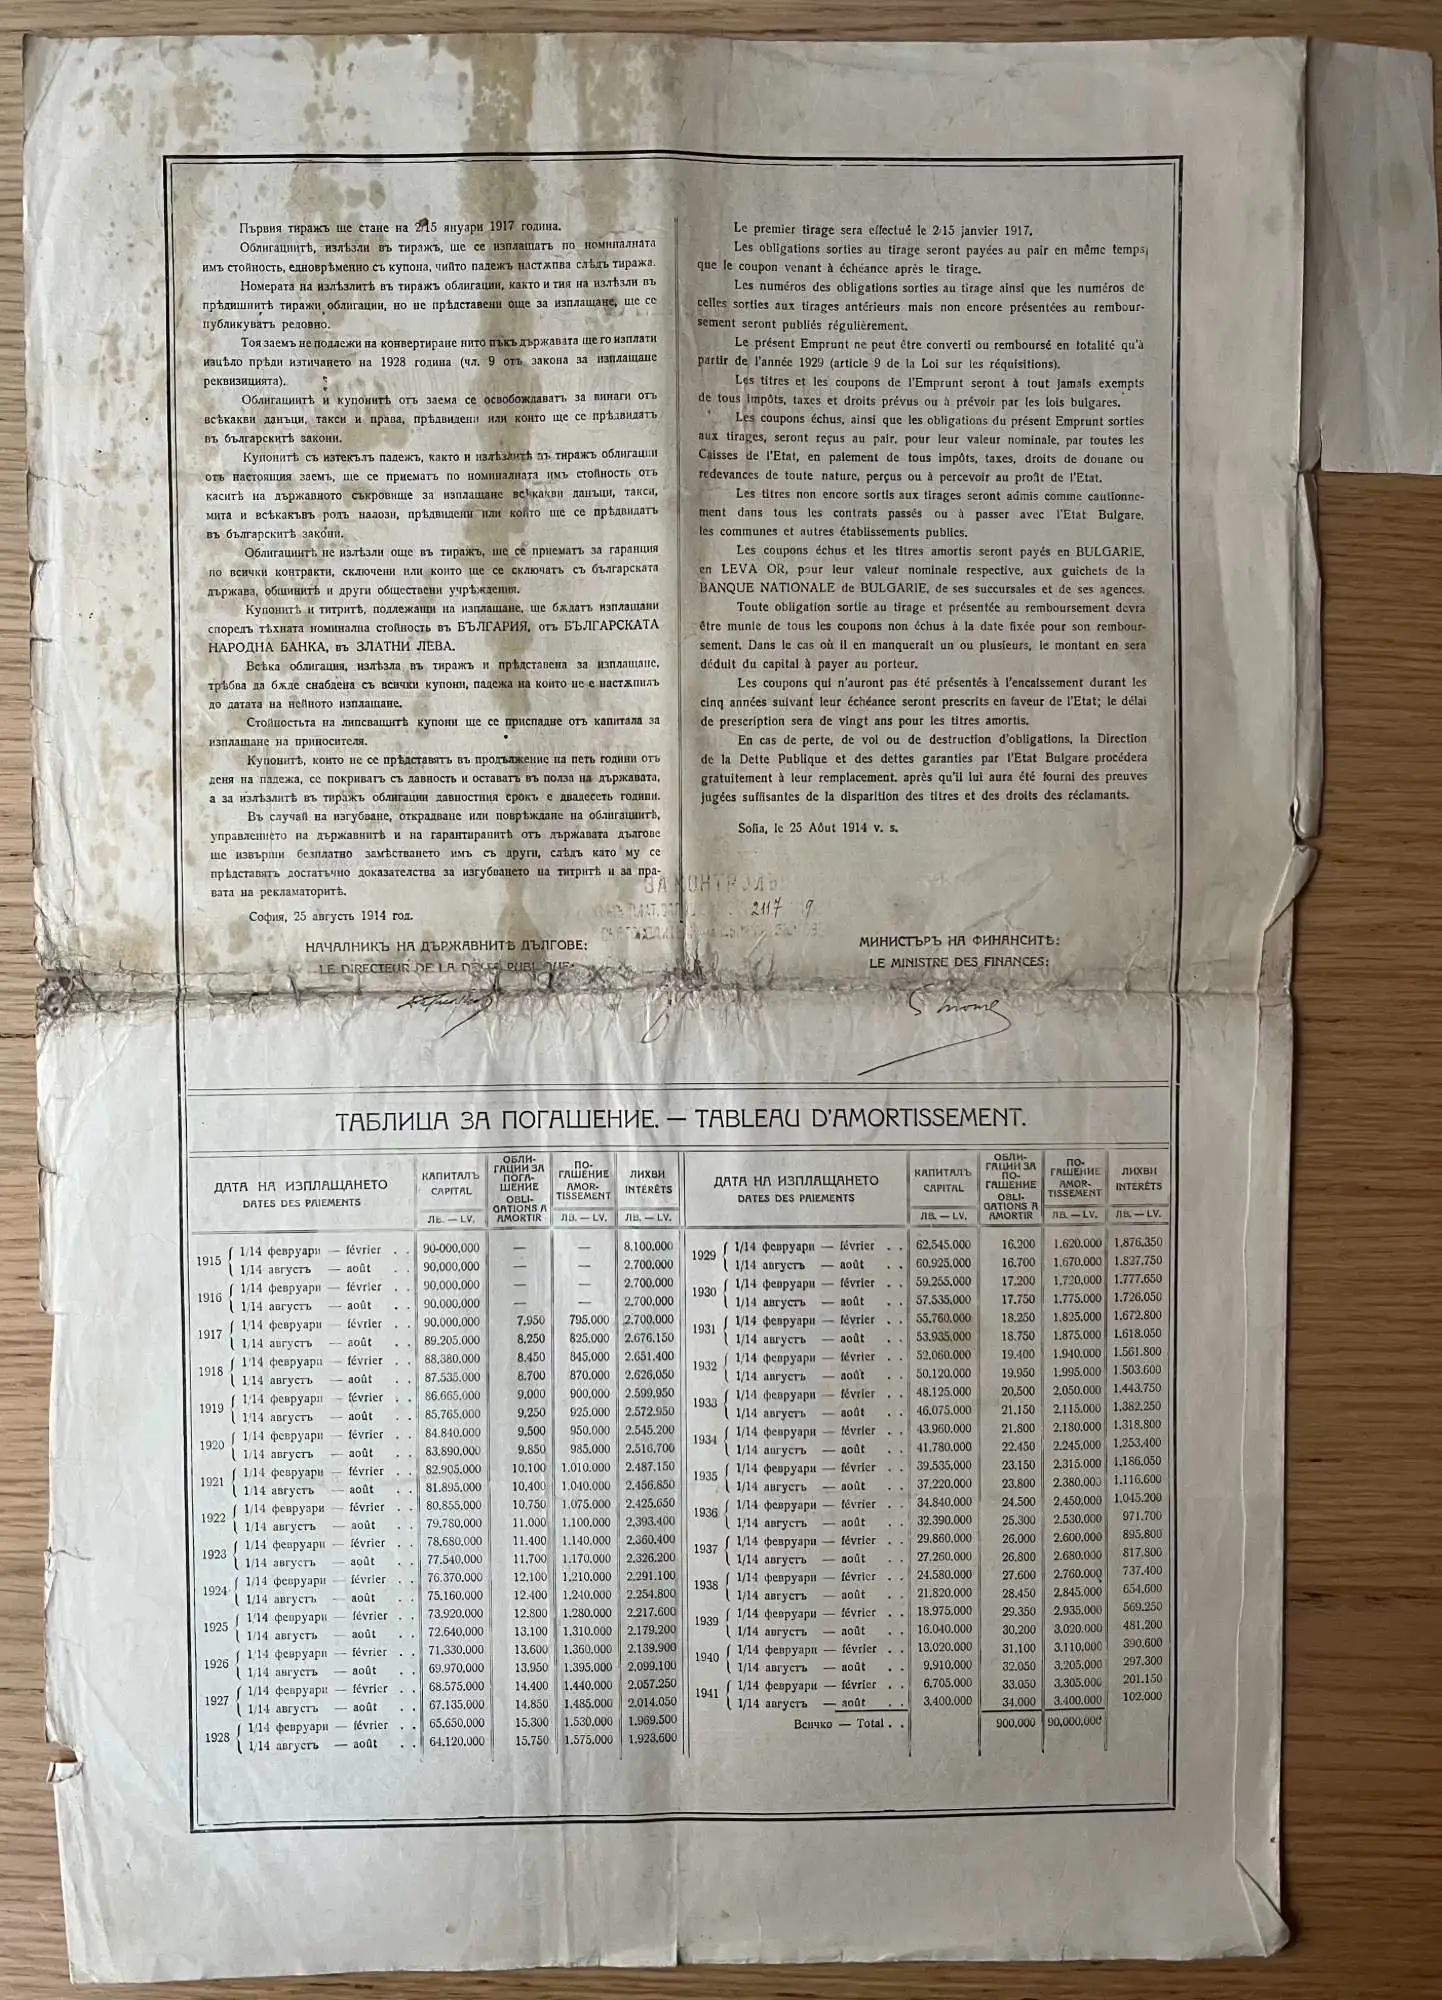 Първия тиражъ ще стане на 2/15 януари 1917 година.
Облигациитѣ, излѣзли въ тиражъ, ще се изплащатъ по номиналната
имъ стойность, едноврѣменно съ купона, чийто падежъ настѫпва слѣдъ тиража.
Номерата на излѣзлитѣ въ тиражъ облигации, както и тия на излѣзли въ
прѣдишнитѣ тиражи облигации, но не прѣдставени още за изплащане, ще се
публикуватъ редовно.
Тоя заемъ не подлежи на конвертиране нито пъкъ държавата ще го изплати
изцѣло прѣди изтичането на 1928 година (чл. 9 отъ закона за изплащане
реквизицията).
Облигациитѣ и купонитѣ отъ заема се освобождаватъ за винаги отъ
всѣкакви данъци, такси и права, прѣдвидени или които ще се прѣдвидатъ
въ българскитѣ закони.
Купонитѣ съ изтекълъ падежъ, както и излѣзлитѣ въ тиражъ облигации
отъ настоящия заемъ, ще се приематъ по номиналната имъ стойность отъ
каситѣ на държавното съкровище за изплащане всѣкакви данъци, такси,
мита и всѣкакъвъ родъ налози, прѣдвидени или които ще се прѣдвидатъ
въ българскитѣ закони.
Облигациитѣ не излѣзли още въ тиражъ, ще се приематъ за гаранция
по всички контракти, сключени или които ще се сключатъ съ българската
държава, общинитѣ и други обществени учрѣждения.
Купонитѣ и титритѣ, подлежащи на изплащане, ще бѫдатъ изплащани
споредъ тѣхната номинална стойность въ БЪЛГАРИЯ, отъ БЪЛГАРСКАТА
НАРОДНА БАНКА, въ ЗЛАТНИ ЛЕВА.
Всѣка облигация, излѣзла въ тиражъ и прѣдставена за изплащане,
трѣбва да бѫде снабдена съ всички купони, падежа на които не е настѫпилъ
до датата на нейното изплащане.
Стойностьта на липсващитѣ купони ще се приспадне отъ капитала за
изплащане на приносителя.
Купонитѣ, които не се прѣдставятъ въ продължение на петь години отъ
деня на падежа, се покриватъ съ давность и оставатъ въ полза на държавата,
а за излѣзлитѣ въ тиражъ облигации давностния срокъ е двадесеть години.
Въ случай на изгубване, открадване или поврѣждане на облигациитѣ,
управлението на държавнитѣ и на гарантиранитѣ отъ държавата дългове
ще извърши безплатно замѣстването имъ съ други, слѣдъ като му се
прѣдставятъ достатъчно доказателства за изгубването на титритѣ и за пра-
вата на рекламаторитѣ.
София, 25 августъ 1914 год.
НАЧАЛНИКЪ НА ДЪРЖАВНИТѢ ДЪЛГОВЕ:
LE DIRECTEUR DE LA DETTE PUBLIQUE:
Le premier tirage sera effectué le 2/15 janvier 1917.
Les obligations sorties au tirage seront payées au pair en même temps,
que le coupon venant à échéance après le tirage.
Les numéros des obligations sorties au tirage ainsi que les numéros de
celles sorties aux tirages antérieurs mais non encore présentées au rembour-
sement seront publiés régulièrement.
Le présent Emprunt ne peut être converti ou remboursé en totalité qu'à
partir de l'année 1929 (article 9 de la Loi sur les réquisitions).
Les titres et les coupons de l'Emprunt seront à tout jamais exempts
de tous impôts, taxes et droits prévus ou à prévoir par les lois bulgares.
Les coupons échus, ainsi que les obligations du présent Emprunt sorties
aux tirages, seront reçus au pair, pour leur valeur nominale, par toutes les
Caisses de l'Etat, en paiement de tous impôts, taxes, droits de douane ou
redevances de toute nature, perçus ou à percevoir au profit de l'Etat.
Les titres non encore sortis aux tirages seront admis comme cautionne-
ment dans tous les contrats passés ou à passer avec l'Etat Bulgare,
les communes et autres établissements publics.
Les coupons échus et les titres amortis seront payés en BULGARIE,
en LEVA OR, pour leur valeur nominale respective, aux guichets de la
BANQUE NATIONALE de BULGARIE, de ses succursales et de ses agences.
Toute obligation sortie au tirage et présentée au remboursement devra
être munie de tous les coupons non échus à la date fixée pour son rembour-
sement. Dans le cas où il en manquerait un ou plusieurs, le montant en sera
déduit du capital à payer au porteur.
Les coupons qui n'auront pas été présentés à l'encaissement durant les
cinq années suivant leur échéance seront prescrits en faveur de l'Etat; le délai
de prescription sera de vingt ans pour les titres amortis.
En cas de perte, de vol ou de destruction d'obligations, la Direction
de la Dette Publique et des dettes garanties par l'Etat Bulgare procédera
gratuitement à leur remplacement, après qu'il lui aura été fourni des preuves
jugées suffisantes de la disparition des titres et des droits des réclamants.
Sofia, le 25 Aôut 1914 v. s.
2117 9
МИНИСТЪРЪ НА ФИНАНСИТѢ:
LE MINISTRE DES FINANCES:
ТАБЛИЦА ЗА ПОГАШЕНИЕ. — TABLEAU D'AMORTISSEMENT.
ДАТА НА ИЗПЛАЩАНЕТО
DATES DES PAIEMENTS
КАПИТАЛЪ
CAPITAL
ЛВ. — LV.
ОБЛИ-
ГАЦИИ ЗА
ПОГА-
ШЕНИЕ
OBLI-
GATIONS A
AMORTIR
ПО-
ГАШЕНИЕ
AMOR-
TISSEMENT
ЛВ. — LV.
ЛИХВИ
INTERÊTS
ЛВ. — LV.
1915 { 1/14 февруари — février . . 90.000,000 — — 8.100.000
1/14 августъ — août . . 90.000,000 — — 2.700.000
1916 { 1/14 февруари — février . . 90.000,000 — — 2.700.000
1/14 августъ — août . . 90.000.000 — — 2.700.000
1917 { 1/14 февруари — février . . 90.000,000 7.950 795.000 2.700.000
1/14 августъ — août . . 89.205.000 8.250 825.000 2.676.150
1918 { 1/14 февруари — février . . 88.380.000 8.450 845.000 2.651.400
1/14 августъ — août . . 87.535.000 8.700 870.000 2.626,050
1919 { 1/14 февруари — février . . 86.665.000 9.000 900.000 2.599.950
1/14 августъ — août . . 85.765.000 9.250 925.000 2.572.950
1920 { 1/14 февруари — février . . 84.840.000 9.500 950.000 2.545.200
1/14 августъ — août . . 83.890.000 9.850 985.000 2.516,700
1921 { 1/14 февруари — février . . 82.905.000 10.100 1.010.000 2.487.150
1/14 августъ — août . . 81.895.000 10,400 1.040.000 2.456.850
1922 { 1/14 февруари — février . . 80.855.000 10,750 1.075.000 2.425.650
1/14 августъ — août . . 79.780.000 11.000 1.100.000 2.393.400
1923 { 1/14 февруари — février . . 78.680,000 11.400 1.140.000 2.360.400
1/14 августъ — août . . 77.540.000 11.700 1.170.000 2.326.200
1924 { 1/14 февруари — février . . 76.370.000 12.100 1.210.000 2.291.100
1/14 августъ — août . . 75.160.000 12.400 1.240.000 2.254.800
1925 { 1/14 февруари — février . . 73.920.000 12.800 1.280.000 2.217.600
1/14 августъ — août . . 72.640,000 13.100 1.310.000 2.179.200
1926 { 1/14 февруари — février . . 71.330.000 13.600 1.360.000 2.139.900
1/14 августъ — août . . 69.970,000 13,950 1.395.000 2.099.100
1927 { 1/14 февруари — février . . 68.575.000 14.400 1.440.000 2.057.250
1/14 августъ — août . . 67.135.000 14.850 1.485.000 2.014.050
1928 { 1/14 февруари — février . . 65.650,000 15.300 1.530.000 1.969,500
1/14 августъ — août . . 64.120.000 15.750 1.575.000 1.923,600
ДАТА НА ИЗПЛАЩАНЕТО
DATES DES PAIEMENTS
КАПИТАЛЪ
CAPITAL
ЛВ. — LV.
ОБЛИ-
ГАЦИИ ЗА
ПО-
ГАШЕНИЕ
OBLI-
GATIONS A
AMORTIR
ПО-
ГАШЕНИЕ
AMOR-
TISSEMENT
ЛВ. — LV.
ЛИХВИ
INTERÊTS
ЛВ. — LV.
1929 { 1/14 февруари — février . . 62,545.000 16.200 1.620.000 1.876,350
1/14 августъ — août . . 60.925.000 16.700 1.670.000 1.827.750
1930 { 1/14 февруари — février . . 59.255.000 17.200 1.720.000 1.777.650
1/14 августъ — août . . 57.535,000 17.750 1.775.000 1.726.050
1931 { 1/14 февруари — février . . 55.760.000 18.250 1.825.000 1.672.800
1/14 августъ — août . . 53.935.000 18.750 1.875.000 1.618.050
1932 { 1/14 февруари — février . . 52.060.000 19.400 1.940.000 1.561.800
1/14 августъ — août . . 50.120.000 19.950 1.995.000 1.503.600
1933 { 1/14 февруари — février . . 48.125.000 20,500 2.050.000 1.443.750
1/14 августъ — août . . 46.075.000 21.150 2.115.000 1.382.250
1934 { 1/14 февруари — février . . 43.960.000 21.800 2.180.000 1.318.800
1/14 августъ — août . . 41.780.000 22.450 2.245.000 1.253.400
1935 { 1/14 февруари — février . . 39.535.000 23.150 2.315.000 1.186,050
1/14 августъ — août . . 37.220.000 23.800 2.380.000 1.116.600
1936 { 1/14 февруари — février . . 34.840.000 24.500 2.450,000 1.045.200
1/14 августъ — août . . 32.390.000 25.300 2.530.000 971.700
1937 { 1/14 февруари — février . . 29.860.000 26.000 2.600.000 895.800
1/14 августъ — août . . 27.260.000 26.800 2.680.000 817.800
1938 { 1/14 февруари — février . . 24.580.000 27.600 2.760.000 737.400
1/14 августъ — août . . 21.820.000 28.450 2.845.000 654.600
1939 { 1/14 февруари — février . . 18.975.000 29.350 2.935.000 569.250
1/14 августъ — août . . 16.040.000 30.200 3.020.000 481.200
1940 { 1/14 февруари — février . . 13.020.000 31,100 3.110,000 390.600
1/14 августъ — août . . 9.910.000 32.050 3.205.000 297.300
1941 { 1/14 февруари — février . . 6.705.000 33.050 3.305.000 201.150
1/14 августъ — août . . 3.400.000 34,000 3.400.000 102.000
Всичко — Total . . 900.000 90,000.000